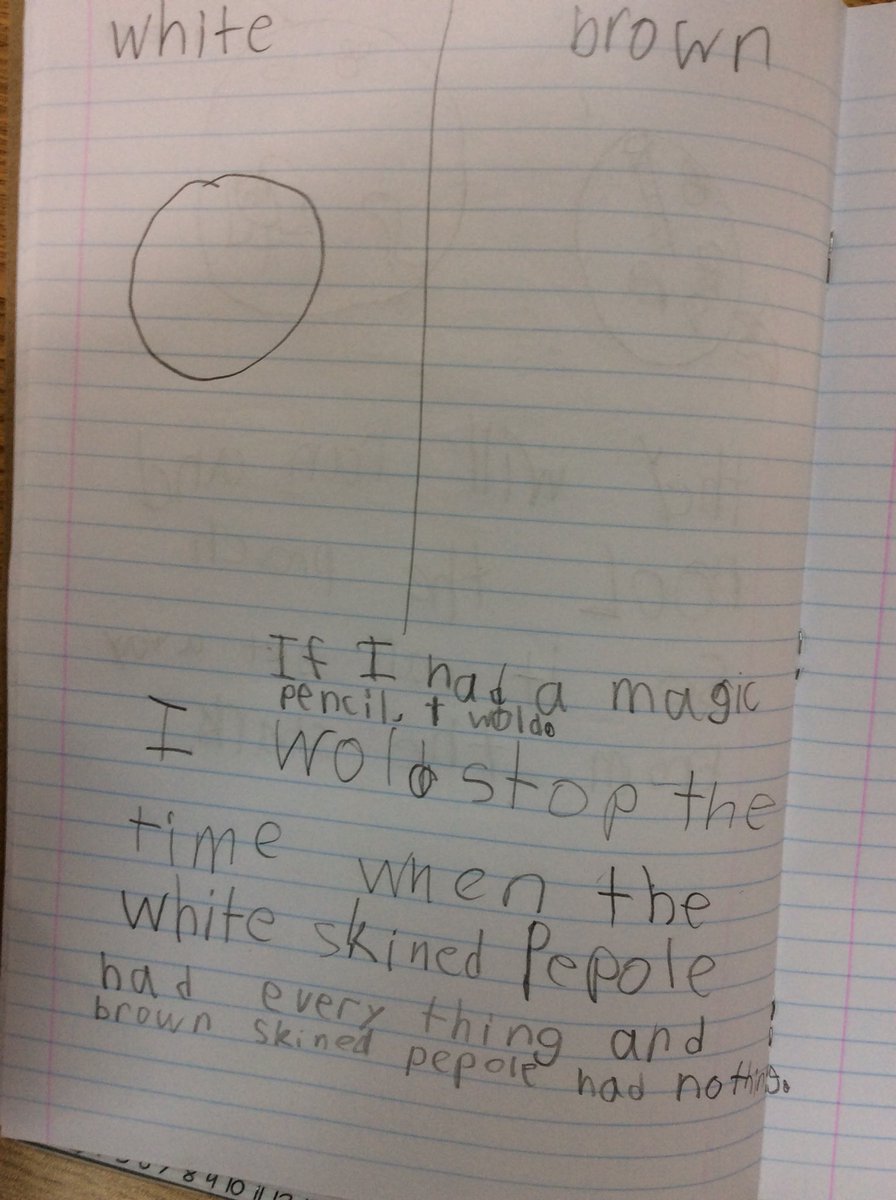 white brown
If I had a magic
pencil, I wold.
I wold stop the
time when the
white skined Pepole
had every thing and
brown skined pepole had nothing.
8 9 10 11 12